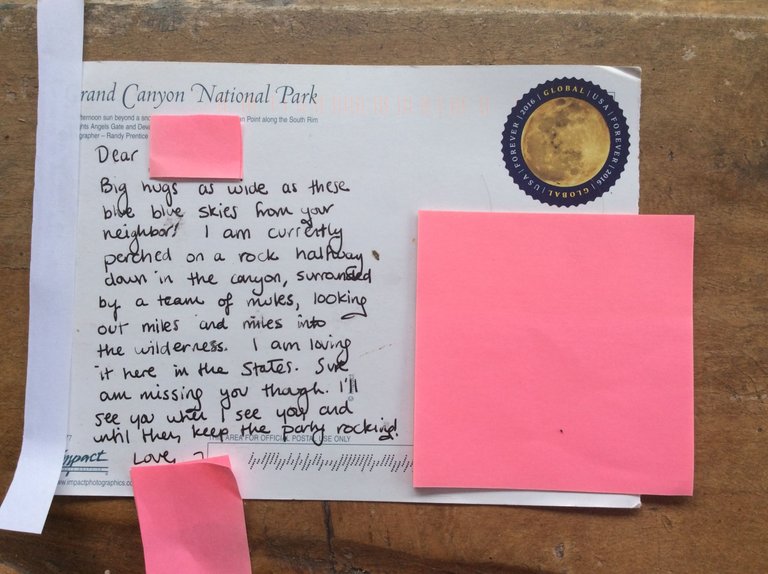 rand Canyon National Park
fternoon sun beyond a sno on Point along the South Rim
ghts Angels Gate and Deva
grapher – Randy Prentice
GLOBAL | USA | FOREVER | 2016 | GLOBAL | USA | FOREVER | 2016
Dear
Big hugs as wide as these
blue blue skies from your
neighbor! I am currently
perched on a rock halfway
down in the canyon, surrounded
by a team of mules, looking
out miles and miles into
the wilderness. I am loving
it here in the States. Sure
am missing you though. I'll
see you when I see you and
until then, keep the party rocking!
THIS AREA FOR OFFICIAL POSTAL USE ONLY
Love,
impact
www.impactphotographics.co